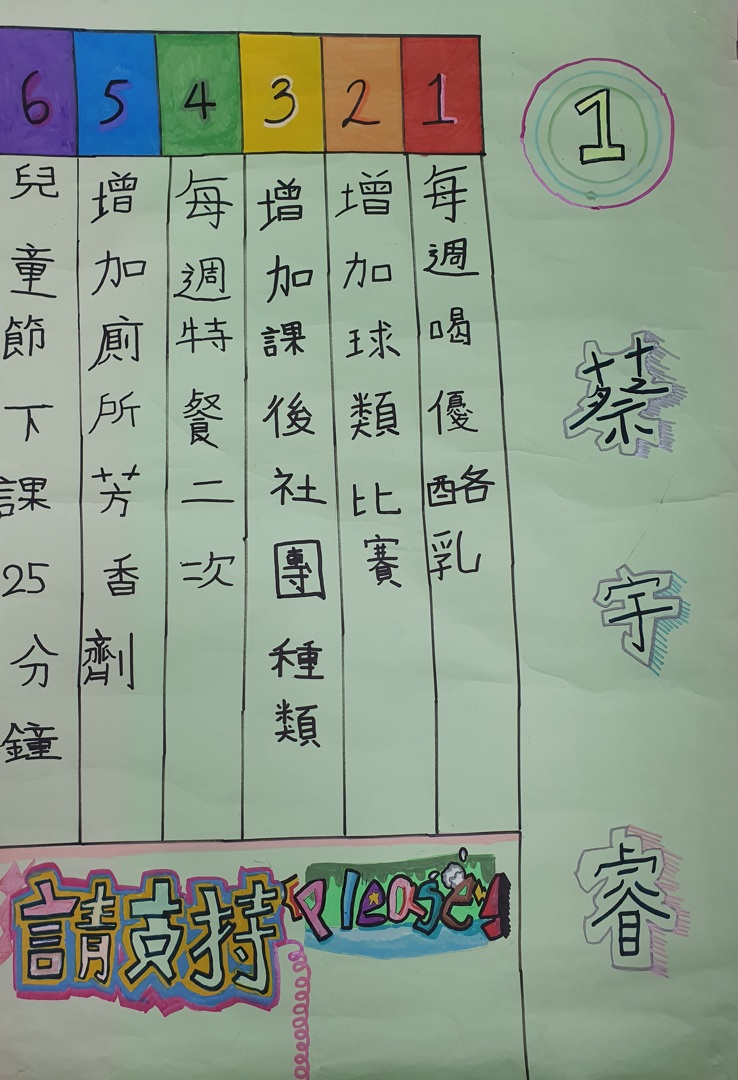 1
蔡宇睿
1
每週喝優酪乳
2
增加球類比賽
3
增加課後社團種類
4
每週特餐二次
5
增加廁所芳香劑
6
兒童節下課25分鐘
請支持
Please!